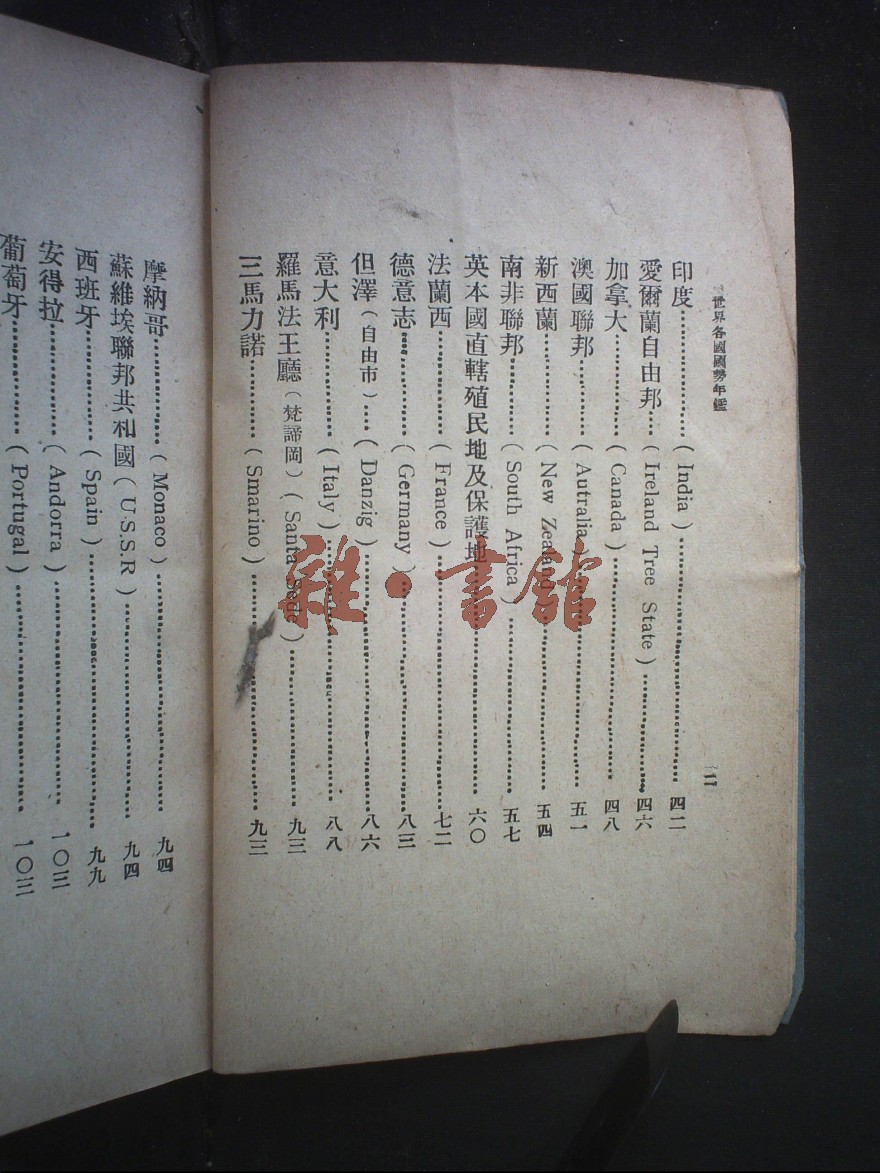 世界各國國勢年鑑
二
印度………(India)………四二
愛爾蘭自由邦…(Ireland Tree State)………四六
加拿大………(Canada)………四八
澳國聯邦………(Autralia)………五一
新西蘭………(New Zealand)………五四
南非聯邦………(South Africa)………五七
英本國直轄殖民地及保護地………六〇
法蘭西………(France)………七二
德意志………(Germany)………八三
但澤(自由市)…(Danzig)………八六
意大利………(Italy)………八八
羅馬法王廳(梵諦岡)(Santa Sede)………九三
三馬力諾………(Smarino)………九三
摩納哥………(Monaco)………九四
蘇維埃聯邦共和國(U.S.S.R)………九四
西班牙………(Spain)………九九
安得拉………(Andorra)………一〇三
葡萄牙………(Portugal)………一〇三
雜·書館